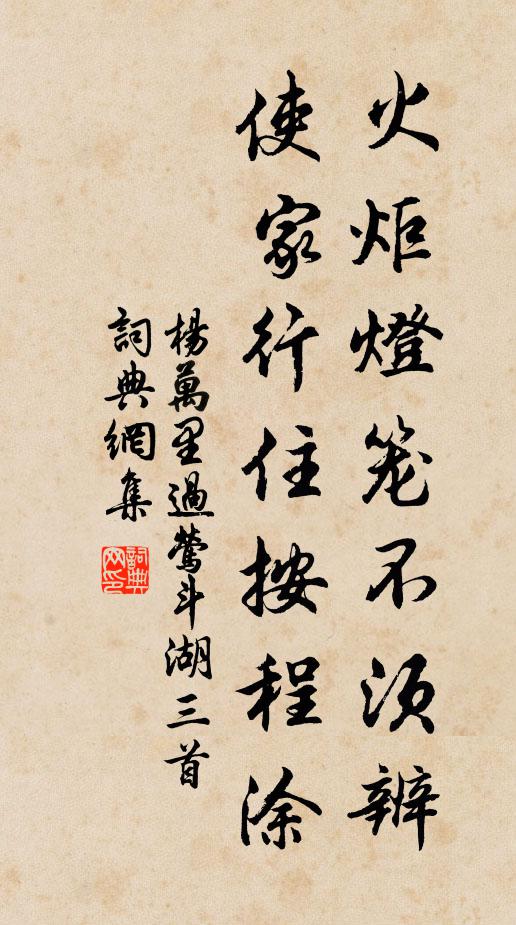 火炬燈笼不须辨
使家行住按程涂
楊萬里過鶯斗湖三首
詞典網集
詞典网印